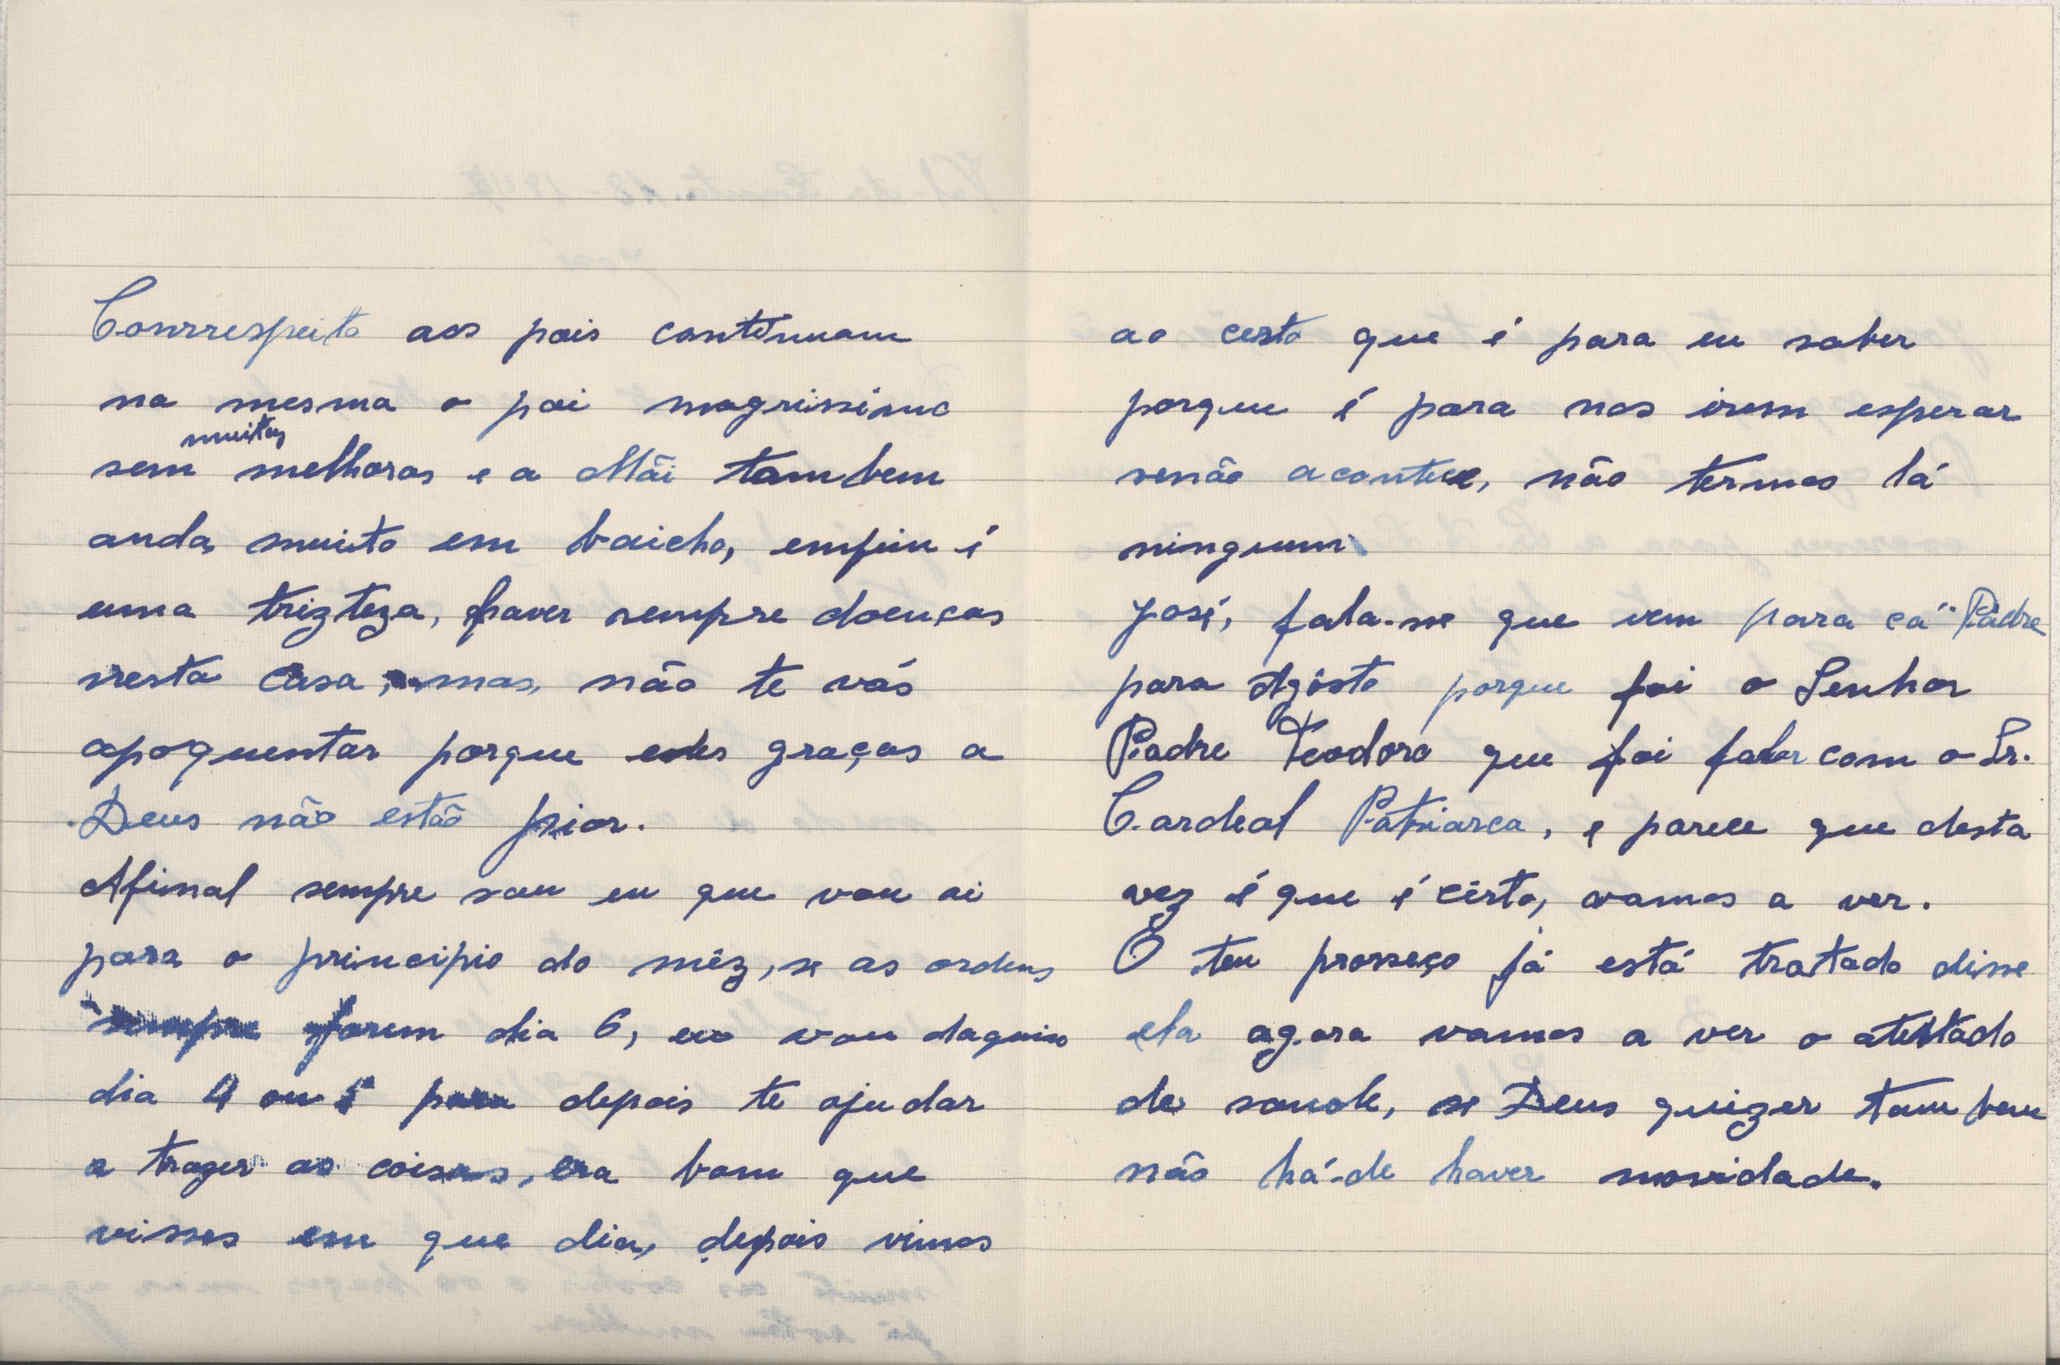 Conrrespeito aos pais continuam
na mesma o pai magrissimo
sem muitas melhoras e a Mãi tambem
anda muito em baicho, emfim é
uma trizteza, haver sempre doenças
nesta casa, mas, não te vás
apoquentar porque eles graças a
Deus não estão pior.
Afinal sempre sou eu que vou ai
para o principio do mêz, se as ordens
sempre forem dia 6, eu vou daquim
dia 4 ou 5 para depois te ajudar
a trazer as coisas, era bom que
visses em que dia, depois vimos
ao certo que é para eu saber
porque é para nos irem esperar
senão acontece, não termos lá
ninguem
José, fala-se que vem para cá Padre
para Agôsto porque foi o Senhor
Padre Teodoro que foi falar com o Sr.
Cardeal Patriarca, e parece que desta
vez é que é cérto, vamos a ver.
O teu prosseço já está tratado disse
ela agora vamos a ver o atestado
de saude, se Deus quizer tambem
não há-de haver novidade.